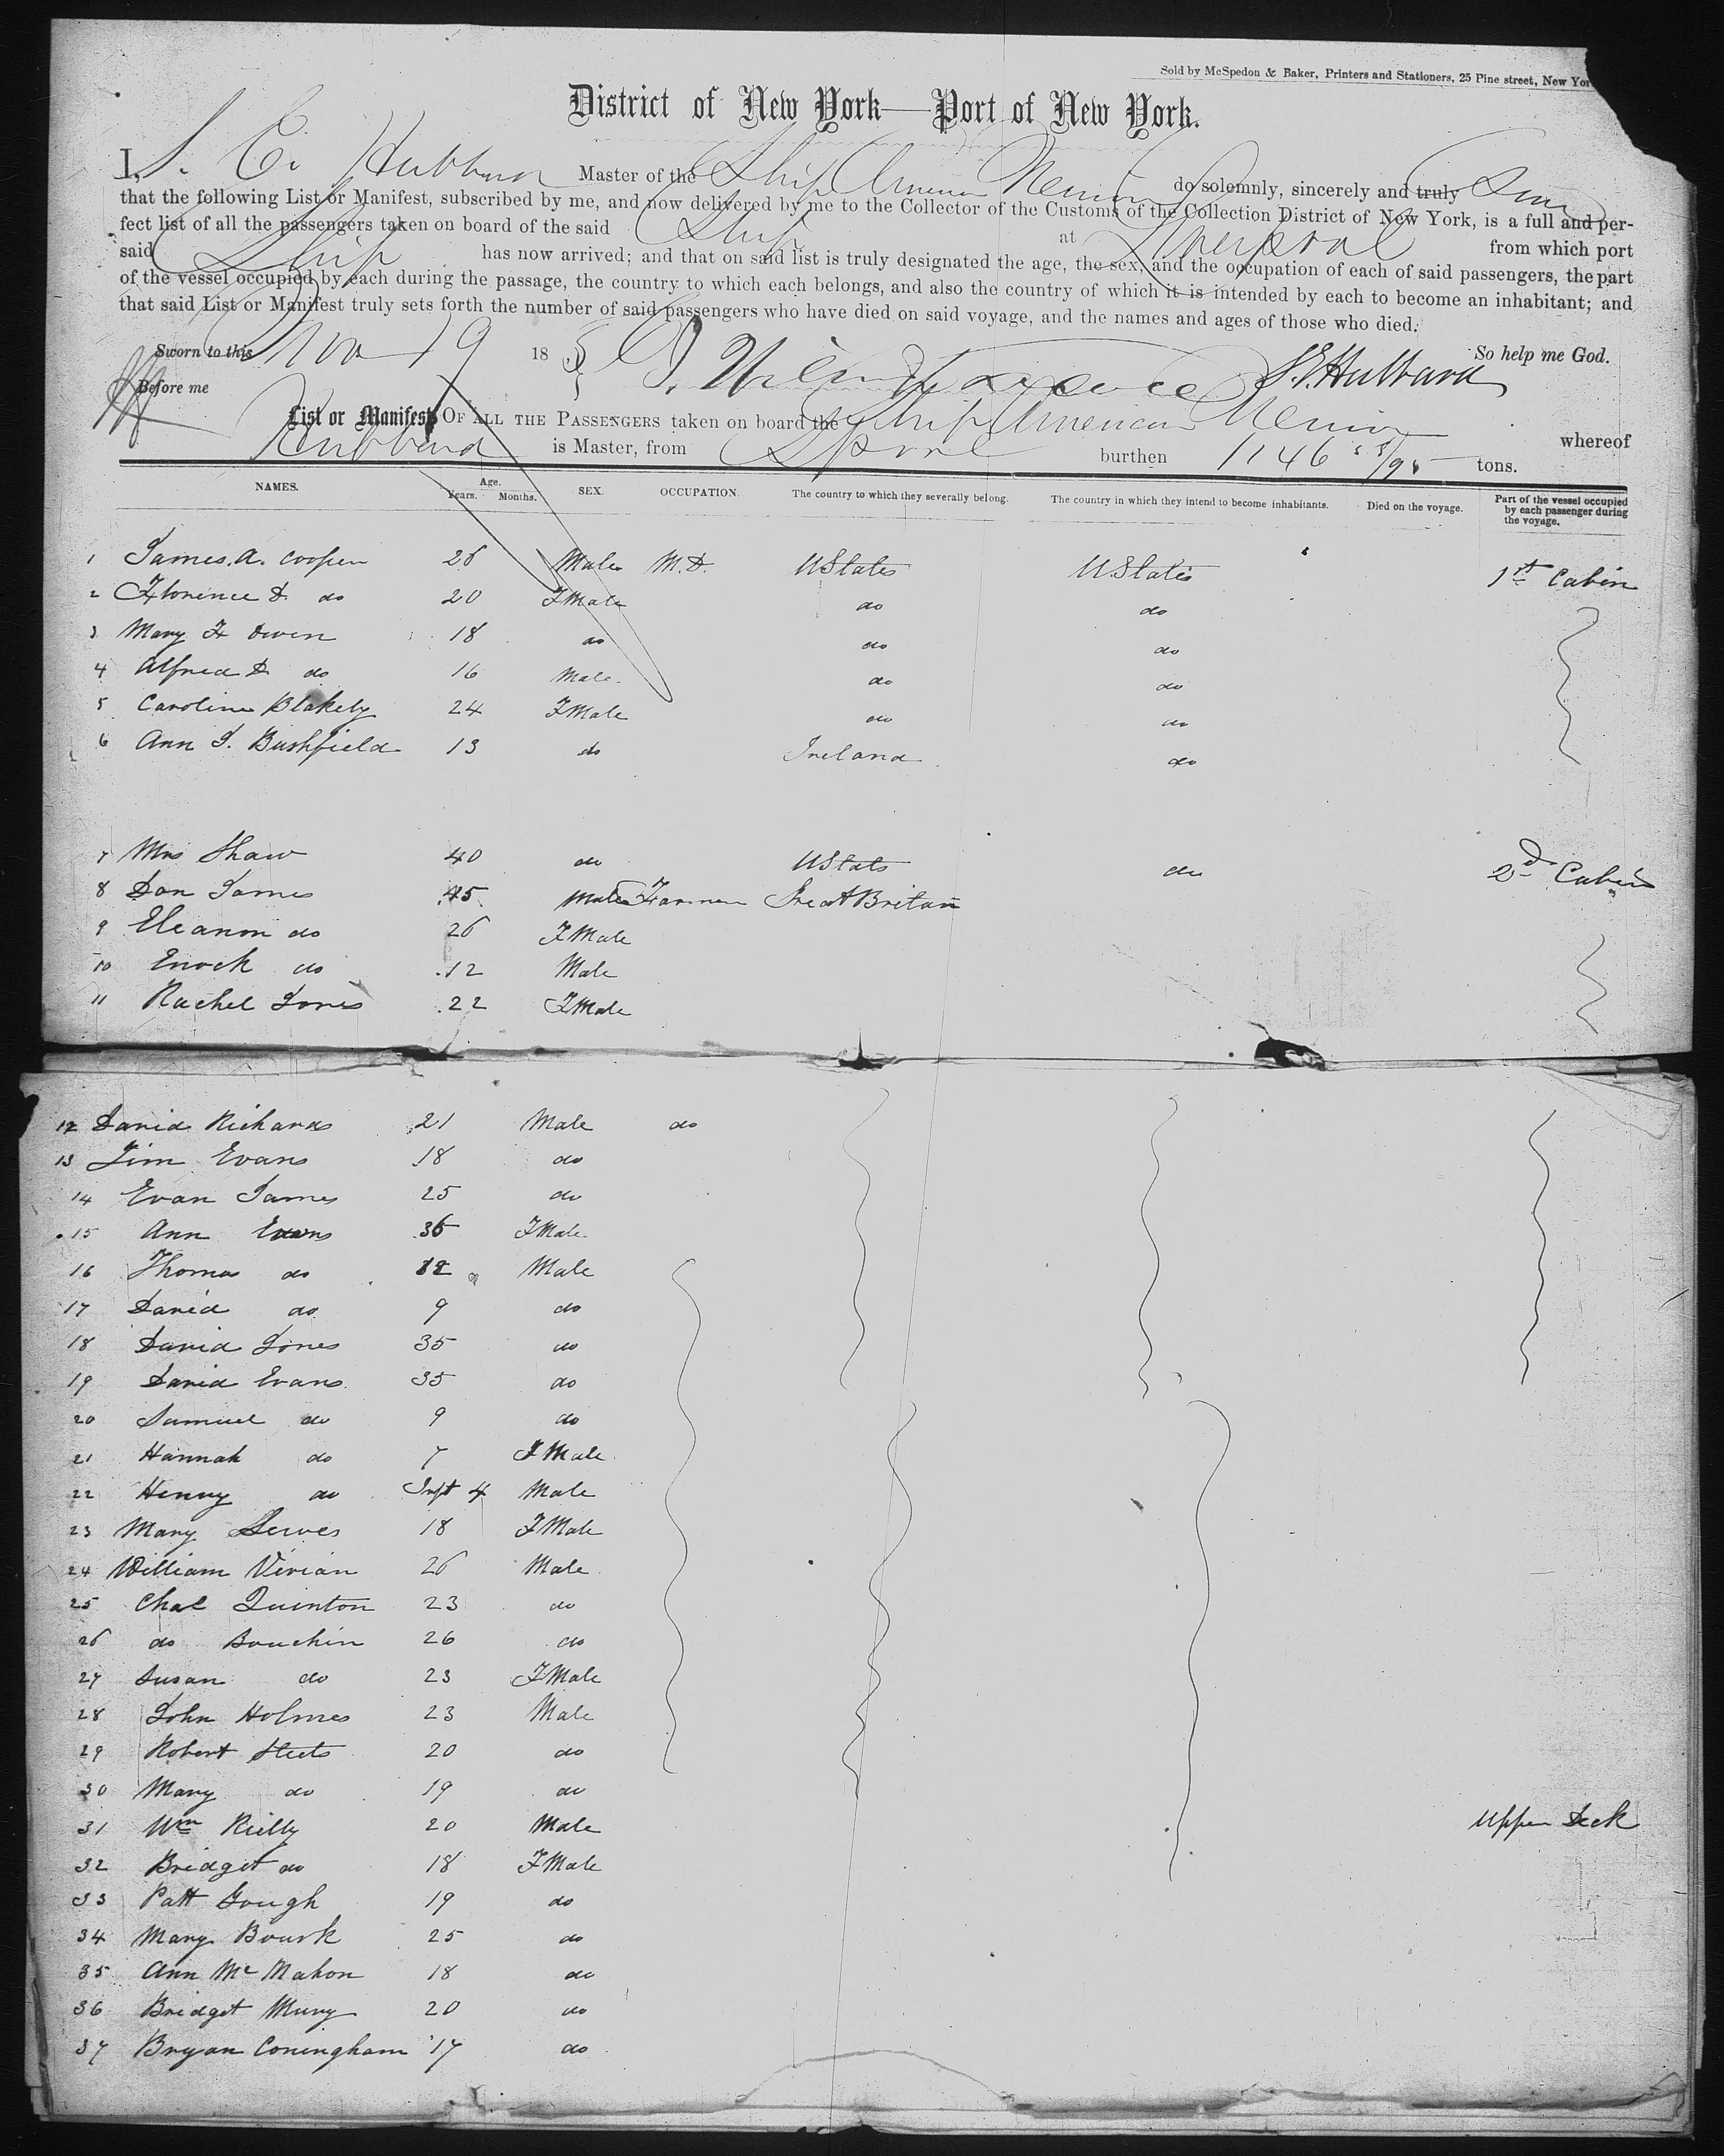 Sold by McSpedon & Baker, Printers and Stationers, 25 Pine street, New Yor
District of New York—Port of New York.
I, S. E. Hubbard Master of the Ship American do solemnly, sincerely and truly Swear
that the following List or Manifest, subscribed by me, and now delivered by me to the Collector of the Customs of the Collection District of New York, is a full and per-
fect list of all the passengers taken on board of the said Ship at Liverpool from which port
said Ship has now arrived; and that on said list is truly designated the age, the sex, and the occupation of each of said passengers, the part
of the vessel occupied by each during the passage, the country to which each belongs, and also the country of which it is intended by each to become an inhabitant; and
that said List or Manifest truly sets forth the number of said passengers who have died on said voyage, and the names and ages of those who died.
Sworn to this Nov 19 185 S. E. Hubbard So help me God.
Before me
List or Manifest OF ALL THE PASSENGERS taken on board the Ship American whereof
Hubbard is Master, from Lpool burthen 1146 /95 tons.
NAMES. Age. Years. Months. SEX. OCCUPATION. The country to which they severally belong. The country in which they intend to become inhabitants. Died on the voyage. Part of the vessel occupied by each passenger during the voyage.
1 James. A. Cooper 28 Male M.D. UStates UStates 1st Cabin
2 Florence D. do 20 FMale do do
3 Mary F Owen 18 do do do
4 Alfred D do 16 Male do do
5 Caroline Blakely 24 FMale do do
6 Ann J. Bushfield 13 do Ireland do
7 Mrs Shaw 40 do UStats do 2d Cabin
8 Dan James 45 Male Farmer Great Britan
9 Eleanor do 26 FMale
10 Enoch do 12 Male
11 Rachel Jones 22 FMale
12 David Richards 21 Male do
13 Jim Evans 18 do
14 Evan James 25 do
15 Ann Evans 36 FMale
16 Thomas do 12 Male
17 David do 9 do
18 David Jones 35 do
19 David Evans 35 do
20 Samuel do 9 do
21 Hannah do 7 FMale
22 Henry do Inft 4 Male
23 Mary 18 FMale
24 William Vivian 26 Male
25 Chas Quinton 23 do
26 do Bouchin 26 do
27 Susan do 23 FMale
28 John Holmes 23 Male
29 Robert Steets 20 do
30 Mary do 19 do
31 Wm Rielly 20 Male Upper Deck
32 Bridget do 18 FMale
33 Patt Gough 19 do
34 Mary Bourk 25 do
35 Ann Mc Mahon 18 do
36 Bridget Murry 20 do
37 Bryan Coningham 17 do